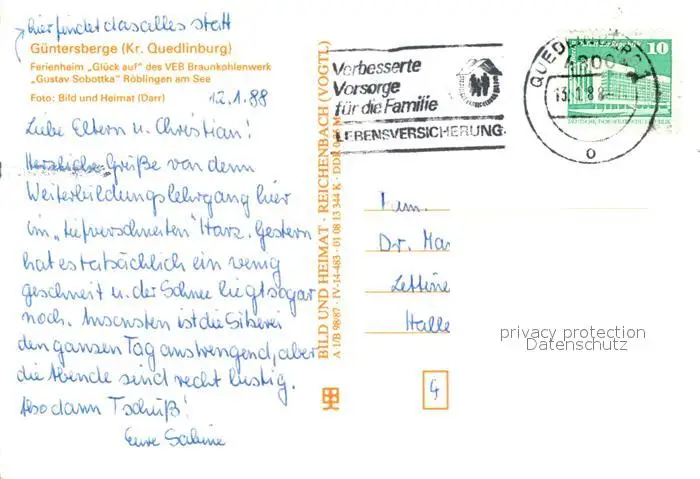 hier findet das alles statt
Güntersberge (Kr. Quedlinburg)
Ferienheim „Glück auf" des VEB Braunkohlenwerk
„Gustav Sobottka" Röblingen am See
Foto: Bild und Heimat (Darr)
12.1.88
Liebe Eltern u. Christian!
Herzliche Grüße von dem
Weiterbildungslehrgang hier
im „tiefverschneiten" Harz. Gestern
hat es tatsächlich ein wenig
geschneit u. der Schnee liegt sogar
noch. Ansonsten ist die Sitzerei
den ganzen Tag anstrengend, aber
die Abende sind recht lustig.
Also dann Tschüß!
Eure Sabine
BILD UND HEIMAT · REICHENBACH (VOGTL)
A 1/B 98/87 · IV-14-483 · 01 08 13 344 K · DDR
Verbesserte
Vorsorge
für die Familie
LEBENSVERSICHERUNG
QUEDLINBURG 1
4300
13.1.88
10
Fam.
Dr. Ma
Lettine
Halle
4
privacy protection
Datenschutz